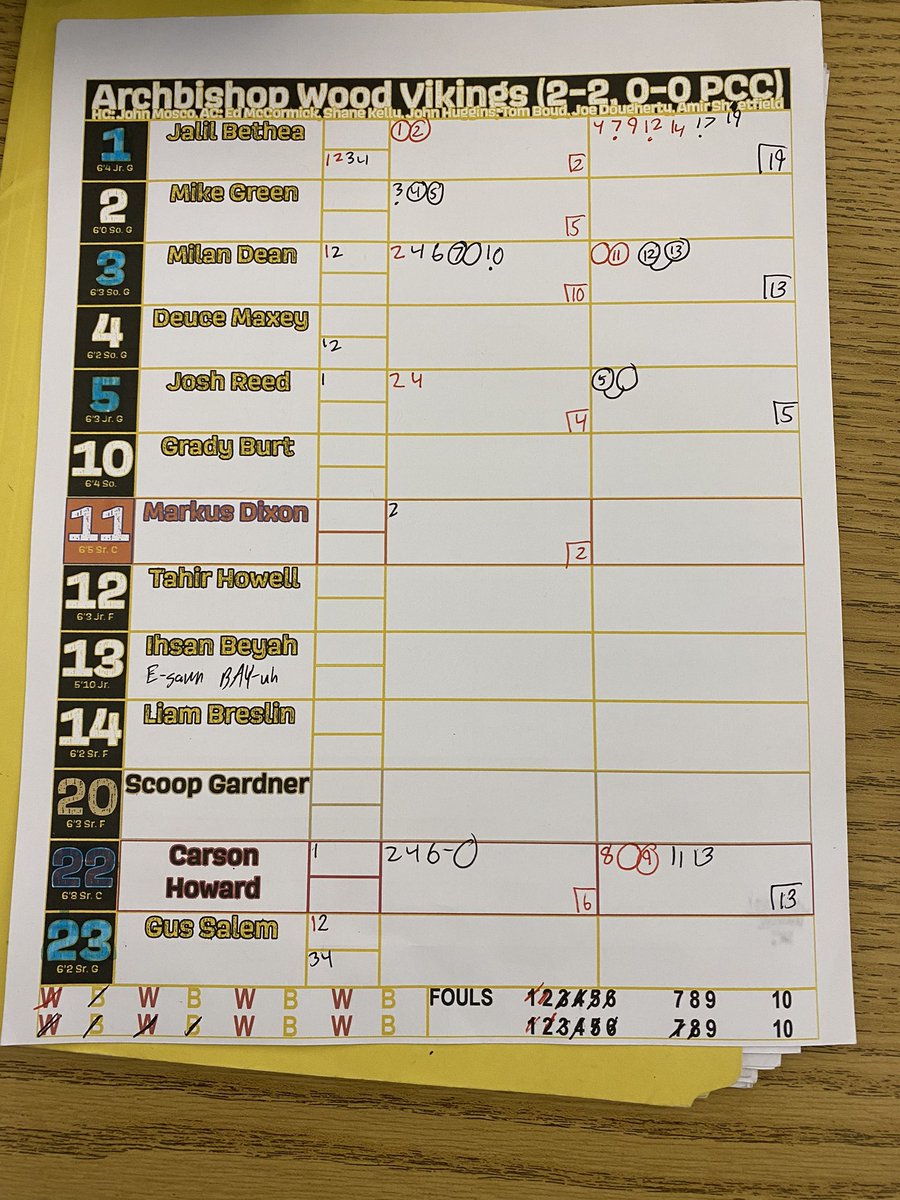 Archbishop Wood Vikings (2-2, 0-0 PCC)
HC: John Mosco, AC: Ed McCormick, Shane Kelly, John Huggins, Tom Boud, Joe Dougherty, Amir
1 Jalil Bethea 1 2 4 7 9 12 14 17 19
6'4 Jr. G 1234 2 19
2 Mike Green 3 4 5
6'0 So. G 5
3 Milan Dean 12 2 4 6 7 10 11 12 13
6'3 So. G 10 13
4 Deuce Maxey
6'2 So. G 12
5 Josh Reed 1 2 4 5
6'3 Jr. G 4 5
10 Grady Burt
6'4 So.
11 Markus Dixon 2
6'5 Sr. C 2
12 Tahir Howell
6'3 Jr. F
13 Ihsan Beyah
E-sawn BAY-uh
5'10 Jr.
14 Liam Breslin
6'2 Sr. F
20 Scoop Gardner
6'3 Sr. F
22 Carson Howard 1 2 4 6 - 8 9 11 13
6'8 Sr. C 6 13
23 Gus Salem 12
6'2 Sr. G 34
W B W B W B W B FOULS 1 2 3 4 5 6 7 8 9 10
W B W B W B W B 1 2 3 4 5 6 7 8 9 10